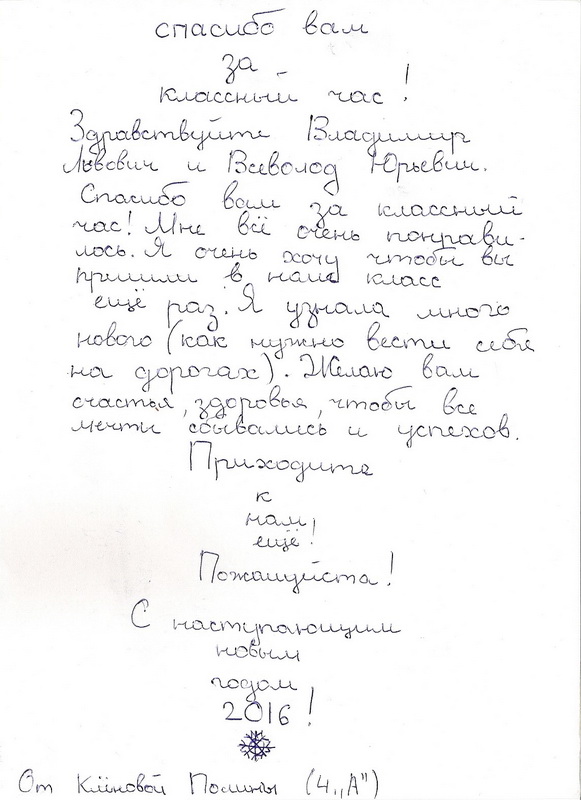 спасибо вам
за
классный час!
Здравствуйте Владимир
Львович и Всеволод Юрьевич.
Спасибо вам за классный
час! Мне всё очень понрави-
лось. Я очень хочу чтобы вы
пришли в наш класс
ещё раз. Я узнала много
нового (как нужно вести себя
на дорогах). Желаю вам
счастья, здоровья, чтобы все
мечты сбывались и успехов.
Приходите
к
нам
ещё!
Пожалуйста!
С наступающим
новым
годом
2016!
От Клёновой Полины (4 „А")